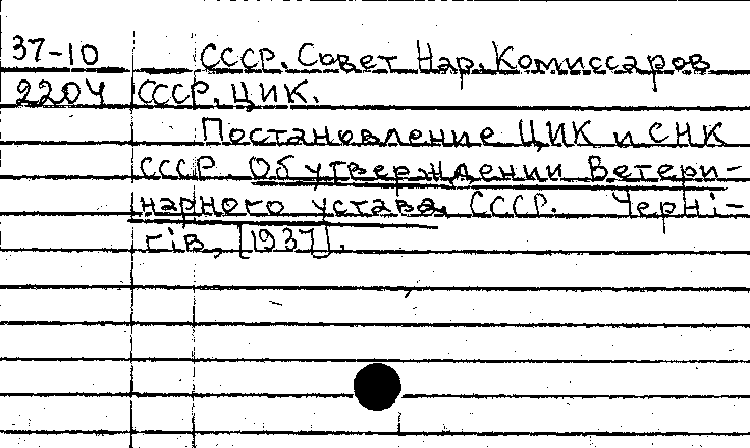 37-10 СССР. Совет Нар. Комиссаров
2204 СССР. ЦИК.
Постановление ЦИК и СНК
СССР. Об утверждении Ветери-
нарного устава. СССР. Черні-
гів, [1937].